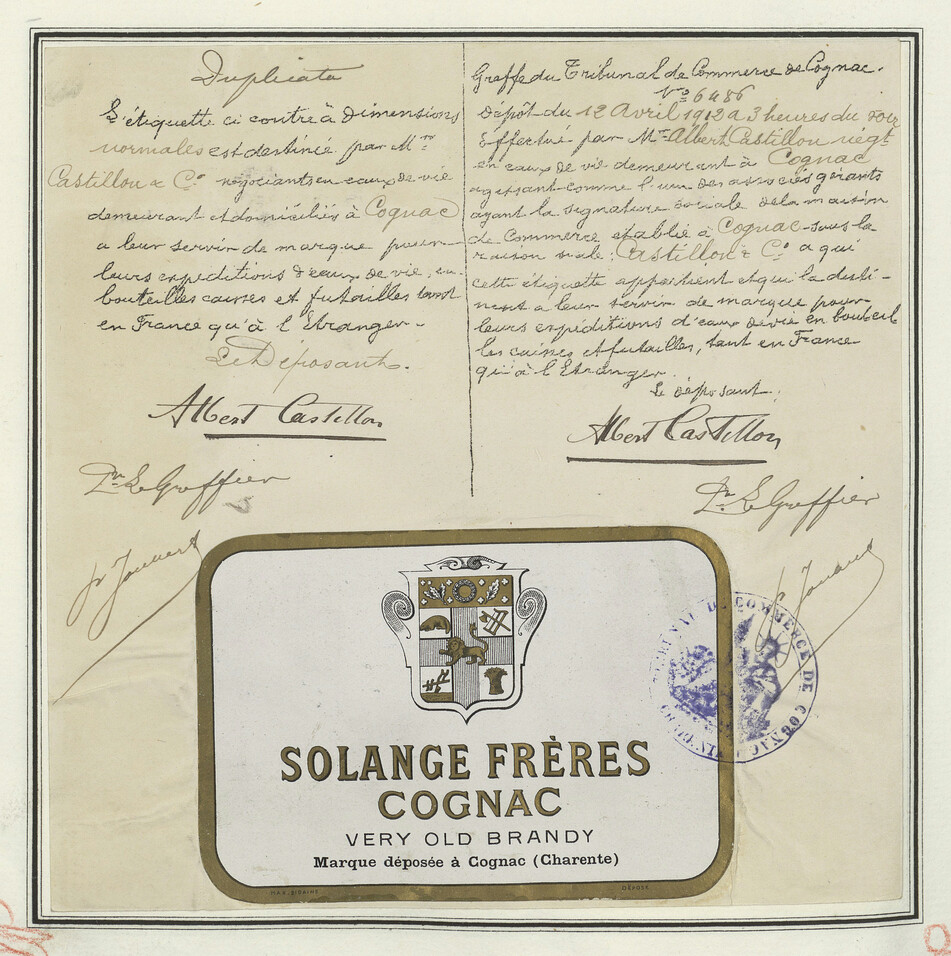 Duplicata
L'étiquette ci contre à dimensions
normales est destinée par Mrs
Castillon & Cº négociants en eaux de vie
demeurant et domiciliés à Cognac
a leur servir de marque pour
leurs expéditions d'eaux de vie, en
bouteilles caisses et futailles tant
en France qu'à l'Etranger.
Le Déposant.
Albert Castillon
Pr Le Greffier
Greffe du Tribunal de Commerce de Cognac.
Nº 6486
Dépôt du 12 Avril 1912 a 3 heures du soir
Effectué par Mr Albert Castillon négt
en eaux de vie demeurant à Cognac
agissant comme l'un des associés gérants
ayant la signature sociale de la maison
de Commerce etablie à Cognac sous la
raison sociale: Castillon & Cº a qui
cette étiquette appartient et qui la desti-
nent a leur servir de marque pour
leurs expéditions d'eaux de vie en bouteil
les caisses et futailles, tant en France
qu'à l'Etranger.
Le déposant.
Albert Castillon
Pr Le Greffier
TRIBUNAL DE COMMERCE DE COGNAC
SOLANGE FRÈRES
COGNAC
VERY OLD BRANDY
Marque déposée à Cognac (Charente)
DÉPOSÉ